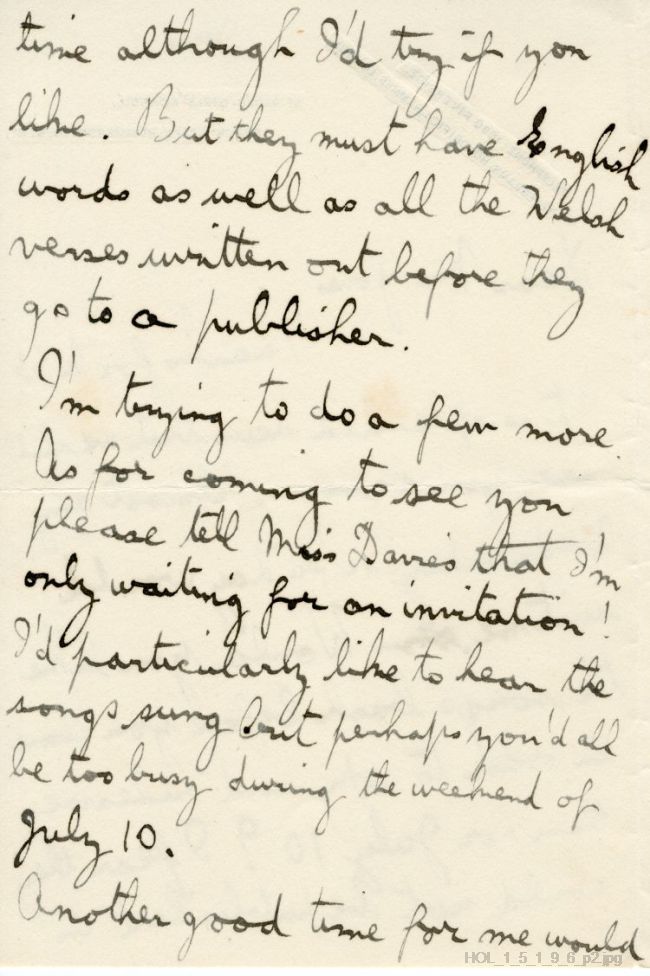 time although I'd try if you
like. But they must have English
words as well as all the Welsh
verses written out before they
go to a publisher.
I'm trying to do a few more.
As for coming to see you
please tell Miss Davies that I'm
only waiting for an invitation!
I'd particularly like to hear the
songs sung but perhaps you'd all
be too busy during the weekend of
July 10.
Another good time for me would
HOL_1_5_1_9_6_p2.jpg